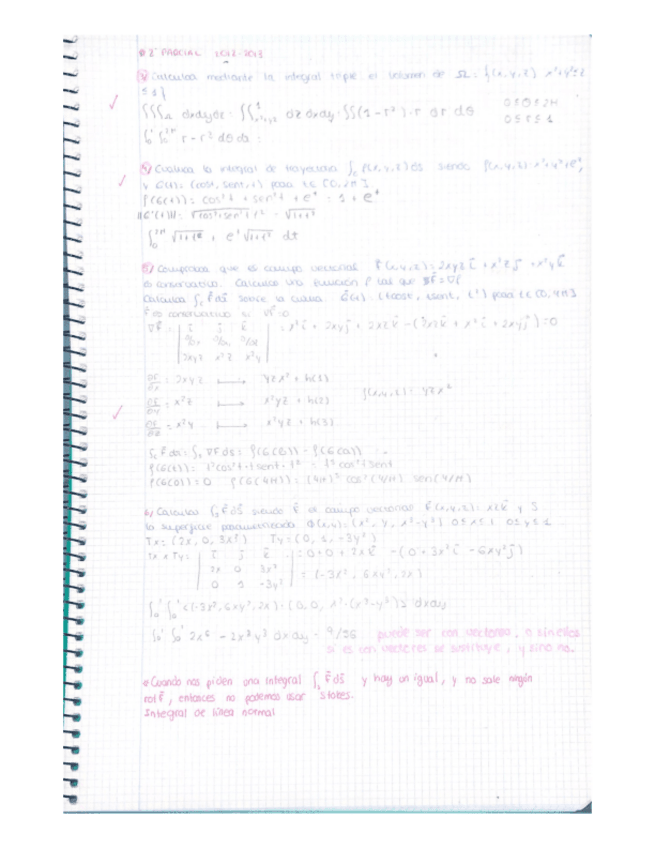 2º PARCIAL 2012-2013
3/ Calcular mediante la integral triple el volumen de Ω: {(x,y,z) x²+y²≤z
≤1}
∫∫∫ dxdydz = ∫∫∫ dz dxdy = ∫∫(1-r²)·r dr dθ 0≤θ≤2π
0≤r≤1
∫₀¹ ∫₀²π r-r³ dθ
4/ Evalúa la integral de trayectoria ∫c f(x,y,z) ds siendo f(x,y,z)=x²+y²+e^z,
y G(t): (cost, sent, t) para t∈[0,2π]
f(G(t)) = cos²t + sen²t + e^t = 1+e^t
5/ Comprobar que el campo vectorial F(x,y,z)=2xyz i + x²z j + x²y k
es conservativo. Calcular una función f tal que F=∇f
Calcula ∫c F ds sobre la curva G(t): (tcost, tsent, t²) para t∈[0,4π]
F es conservativo si ∇F=0
i j k
2xyz x²z x²y
= 2xyz yzx² + h(1)
= x²z x²yz + h(2) f(x,y,z) = yzx²
= x²y x²yz + h(3)
∫c F ds = ∫c ∇F ds = f(G(b)) - f(G(a))
f(G(t)) = t²cos²t · tsent · t² = t⁵cos²t sent
f(G(0)) = 0 f(G(4π)) = (4π)⁵ cos²(4π) sen(4π)
6/ Calcula ∫s F ds siendo F el campo vectorial F(x,y,z)= xz k y S
la superficie parametrizada (x², y, x³-y³) 0≤x≤1 0≤y≤1
Tx = (2x, 0, 3x²) Ty = (0, 1, -3y²)
Tx x Ty = i j k = 0+0+2x k - (0+3x² i - 6xy² j)
2x 0 3x² = (-3x², 6xy², 2x)
0 1 -3y²
∫₀¹ ∫₀¹ <(-3x², 6xy², 2x)·(0, 0, x²·(x³-y³))> dxdy
∫₀¹ ∫₀¹ 2x⁶ - 2x³y³ dxdy = puede ser con vectores, o sin ellos
si es con vectores se sustituye, y sino no.
Cuando nos piden una integral ∫s F ds y hay un igual, y no sale ningún
rot F, entonces no podemos usar Stokes.
Integral de línea normal